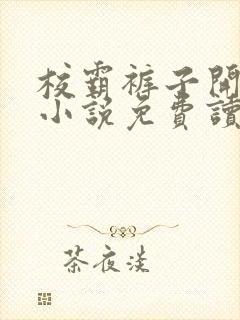 校霸裤子開
小說免費讀
茶夜淡